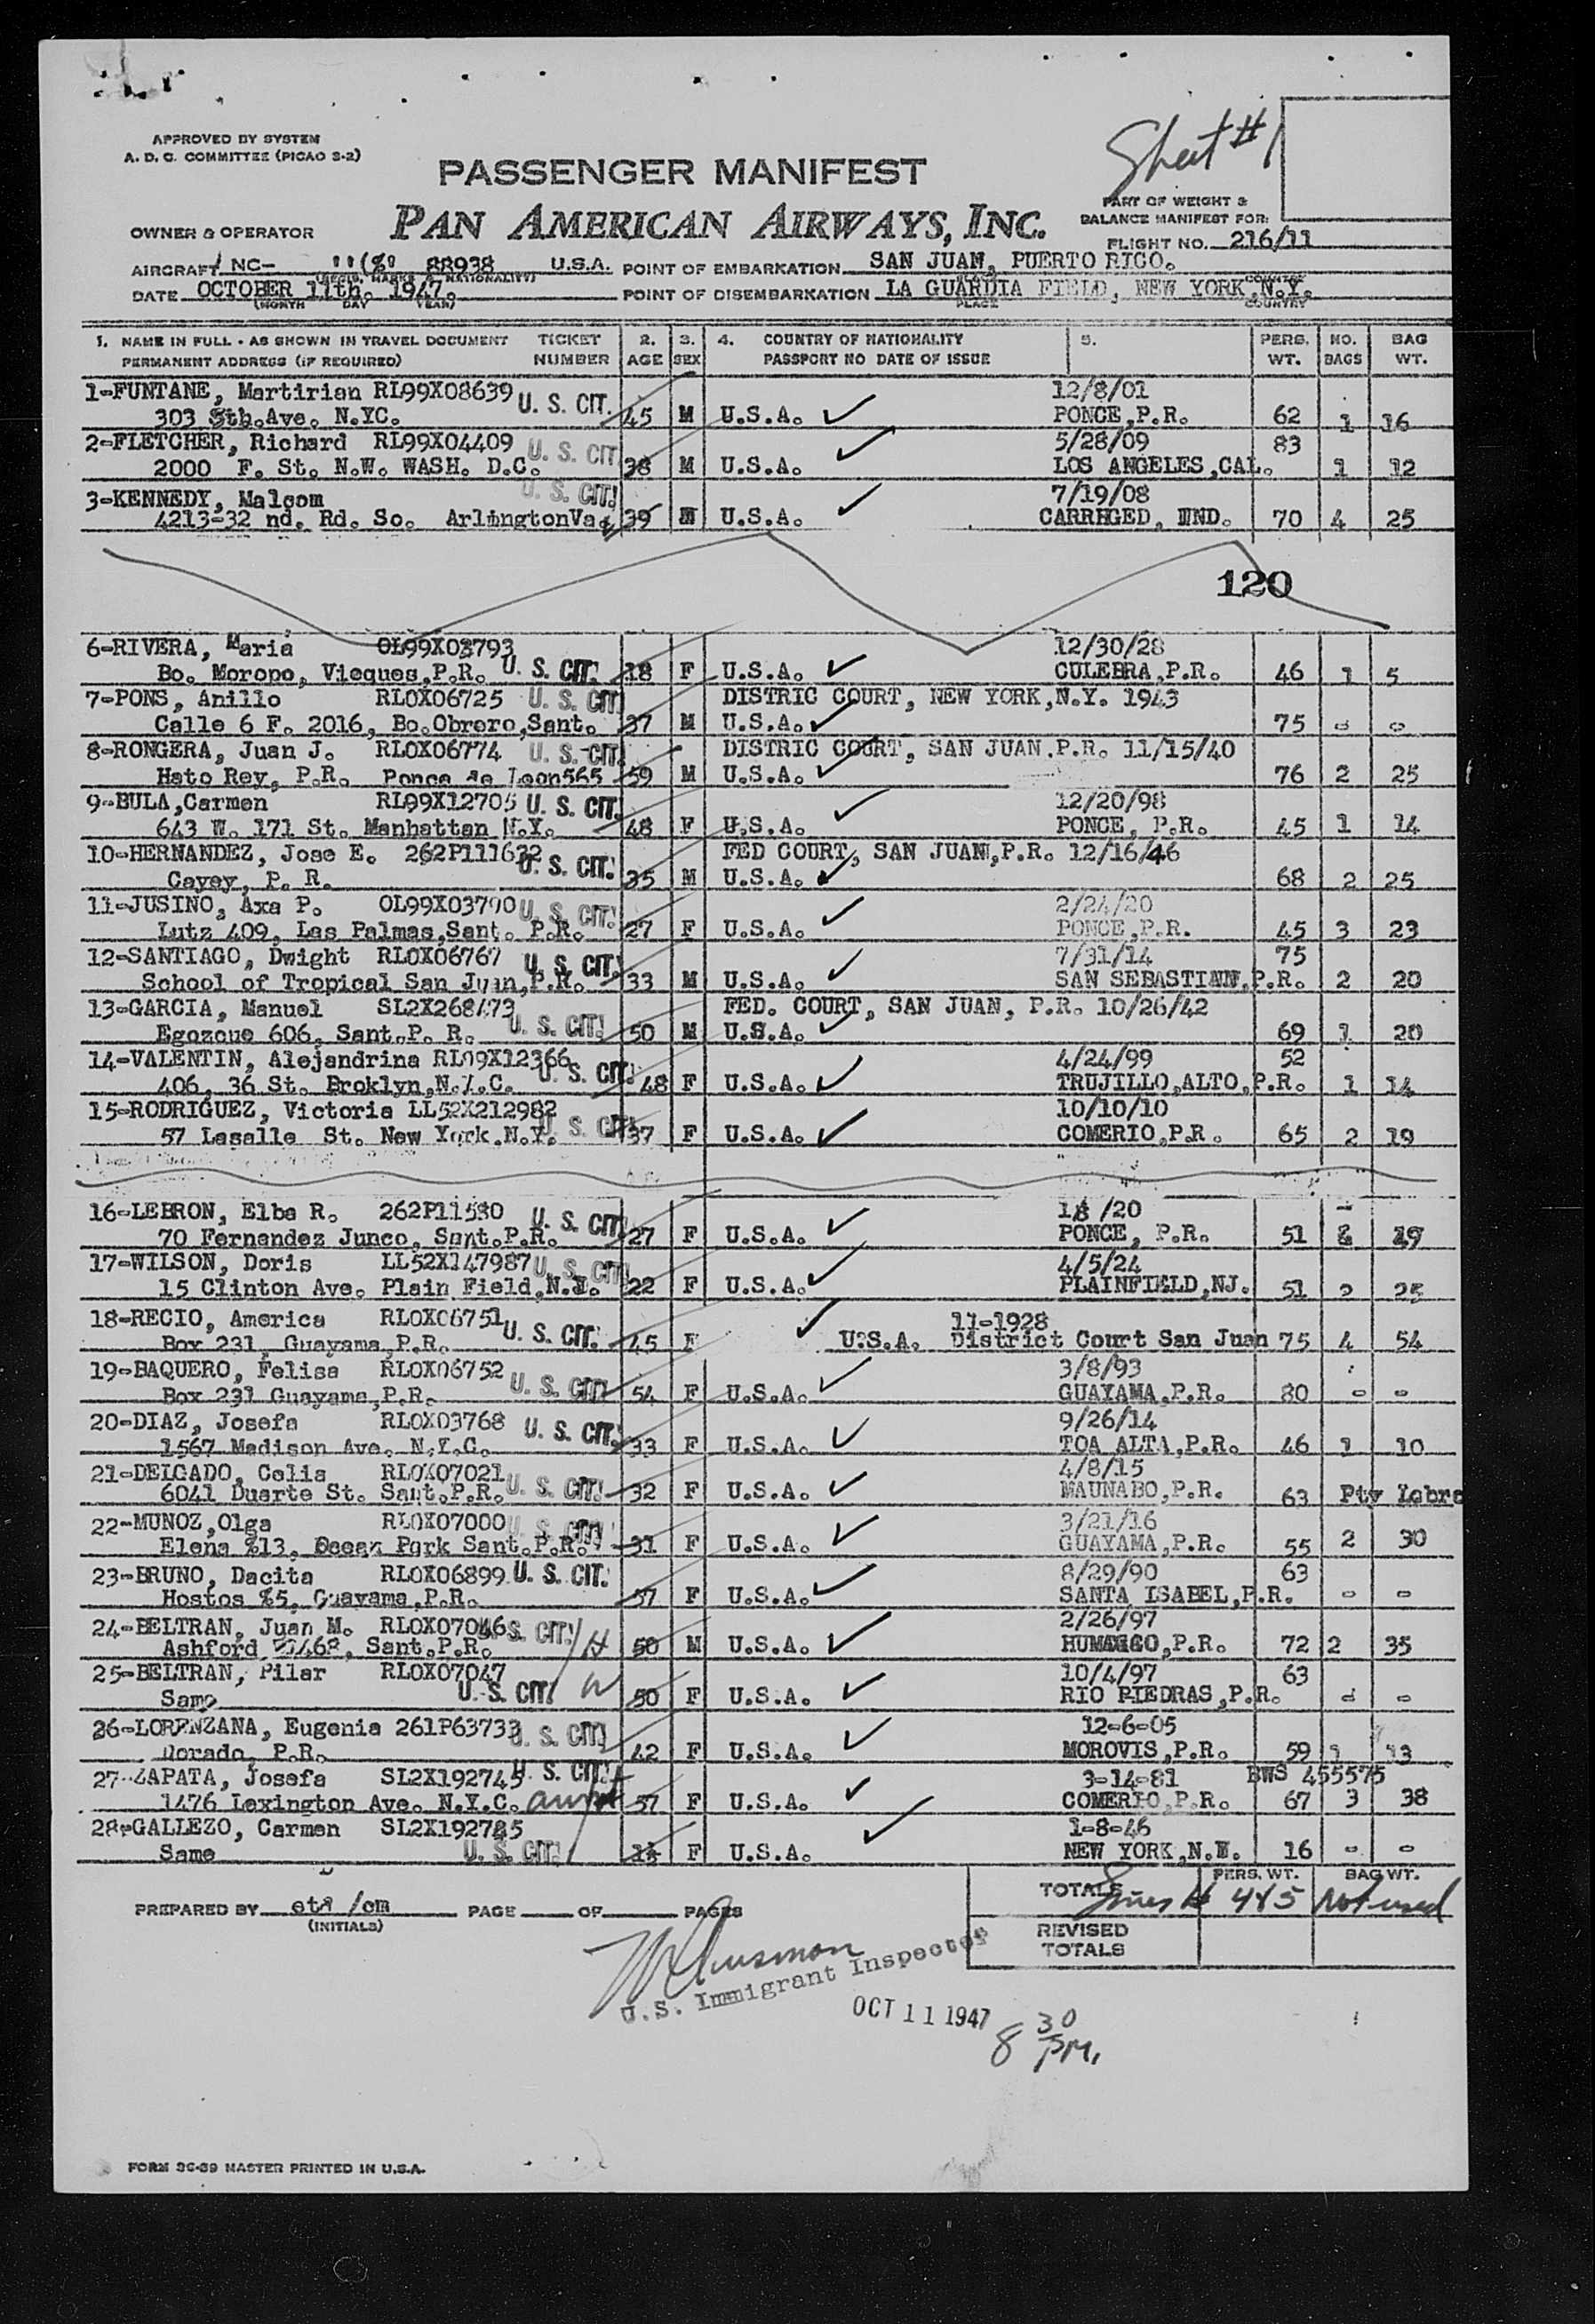 APPROVED BY SYSTEM
A. D. C. COMMITTEE (PICAO S-2)
Sheet #1
PASSENGER MANIFEST
PART OF WEIGHT &
BALANCE MANIFEST FOR:
OWNER & OPERATOR
PAN AMERICAN AIRWAYS, INC.
FLIGHT NO. 216/11
AIRCRAFT NC- 88938 U.S.A. POINT OF EMBARKATION SAN JUAN, PUERTO RICO.
DATE OCTOBER 11th. 1947. POINT OF DISEMBARKATION LA GUARDIA FIELD, NEW YORK, N.Y.
(MONTH DAY YEAR) PLACE COUNTRY
1. NAME IN FULL - AS SHOWN IN TRAVEL DOCUMENT TICKET 2. 3. 4. COUNTRY OF NATIONALITY 5. PERS. NO. BAG
PERMANENT ADDRESS (IF REQUIRED) NUMBER AGE SEX PASSPORT NO DATE OF ISSUE WT. BAGS WT.
1-FUNTANE, Martirian RL99X08639 U. S. CIT. 12/8/01
303 5th.Ave. N.YC. 45 M U.S.A. PONCE,P.R. 62 1 16
2-FLETCHER, Richard RL99X04409 U. S. CIT 5/28/09 83
2000 F. St. N.W. WASH. D.C. 38 M U.S.A. LOS ANGELES,CAL. 1 12
3-KENNEDY, Malcom U. S. CIT! 7/19/08
4213-32 nd. Rd. So. ArlingtonVa. 39 M U.S.A. CARRHGED, IND. 70 4 25
120
6-RIVERA, Maria OL99X03793 12/30/28
Bo. Moropo, Vieques,P.R. U. S. CIT! 18 F U.S.A. CULEBRA,P.R. 46 1 5
7-PONS, Anillo RLOX06725 U. S. CIT DISTRIC COURT, NEW YORK,N.Y. 1943
Calle 6 F. 2016, Bo.Obrero,Sant. 37 M U.S.A. 75 - -
8-RONGERA, Juan J. RLOX06774 U. S. CIT DISTRIC COURT, SAN JUAN.P.R. 11/15/40
Hato Rey, P.R. Ponce de Leon565 59 M U.S.A. 76 2 25
9-BULA,Carmen RL99X12705 U. S. CIT. 12/20/98
643 W. 171 St. Manhattan N.Y. 48 F U.S.A. PONCE, P.R. 45 1 14
10-HERNANDEZ, Jose E. 262P111632 U. S. CIT! FED COURT, SAN JUAN,P.R. 12/16/46
Cayey, P. R. 35 M U.S.A. 68 2 25
11-JUSINO, Axa P. OL99X03790 U. S. CIT! 2/24/20
Lutz 409, Las Palmas,Sant. P.R. 27 F U.S.A. PONCE,P.R. 45 3 23
12-SANTIAGO, Dwight RLOX06767 U. S. CIT! 7/31/14 75
School of Tropical San Juan,P.R. 33 M U.S.A. SAN SEBASTIANN,P.R. 2 20
13-GARCIA, Manuel SL2X268473 U. S. CIT! FED. COURT, SAN JUAN, P.R. 10/26/42
Egozcue 606, Sant.P. R. 50 M U.S.A. 69 1 20
14-VALENTIN, Alejandrina RL99X12366 U. S. CIT! 4/24/99 52
406, 36 St. Broklyn,N.Y.C. 48 F U.S.A. TRUJILLO,ALTO,P.R. 1 14
15-RODRIGUEZ, Victoria LL52X212982 10/10/10
57 Lasalle St. New York.N.Y. U. S. CIT 37 F U.S.A. COMERIO,P.R. 65 2 19
16-LEBRON, Elba R. 262P11580 U. S. CIT! /20
70 Fernandez Junco, Sant.P.R. 27 F U.S.A. PONCE, P.R. 51 19
17-WILSON, Doris LL52X147987 U. S. CIT! 4/5/24
15 Clinton Ave. Plain Field,N.J. 22 F U.S.A. PLAINFIELD,NJ. 51 2 25
18-RECIO, America RLOX06751 U. S. CIT. 11-1928
Box 231, Guayama,P.R. 45 F U.S.A. District Court San Juan 75 4 54
19-BAQUERO, Felisa RLOX06752 U. S. CIT! 3/8/93
Box 231 Guayama,P.R. 54 F U.S.A. GUAYAMA,P.R. 80 - -
20-DIAZ, Josefa RLOX03768 U. S. CIT! 9/26/14
1567 Madison Ave. N.Y.C. 33 F U.S.A. TOA ALTA,P.R. 46 1 10
21-DELGADO, Celia RLOX07021 U. S. CIT! 4/8/15
6041 Duarte St. Sant.P.R. 32 F U.S.A. MAUNABO,P.R. 63 Pty Lebro
22-MUNOZ,Olga RLOX07000 U. S. CIT! 3/21/16
Elena %13, Ocean Park Sant.P.R. 31 F U.S.A. GUAYAMA,P.R. 55 2 30
23-BRUNO, Dacita RLOX06899 U. S. CIT. 8/29/90 63
Hostos %5, Guayama,P.R. 57 F U.S.A. SANTA ISABEL,P.R. - -
24-BELTRAN, Juan M. RLOX07046 U. S. CIT! H 2/26/97
Ashford 1468, Sant.P.R. 50 M U.S.A. HUMACAO,P.R. 72 2 35
25-BELTRAN, Pilar RLOX07047 U. S. CIT! W 10/4/97 63
Same 50 F U.S.A. RIO PIEDRAS,P.R. - -
26-LORENZANA, Eugenia 261P63733 U. S. CIT! 12-6-05
Dorado, P.R. 42 F U.S.A. MOROVIS,P.R. 59 1 13
27-ZAPATA, Josefa SL2X192745 U. S. CIT! 3-14-81 BWS 455575
1476 Lexington Ave. N.Y.C. aunt 57 F U.S.A. COMERIO,P.R. 67 3 38
28-GALLEZO, Carmen SL2X192785 1-8-46
Same U. S. CIT! F U.S.A. NEW YORK,N.Y. 16 - -
PERS. WT. BAG WT.
TOTALS 445 Not used
PREPARED BY ets /cm PAGE OF PAGES
(INITIALS)
REVISED
TOTALS
U.S. Immigrant Inspector
OCT 11 1947
8 30 PM.
FORM 36-39 MASTER PRINTED IN U.S.A.